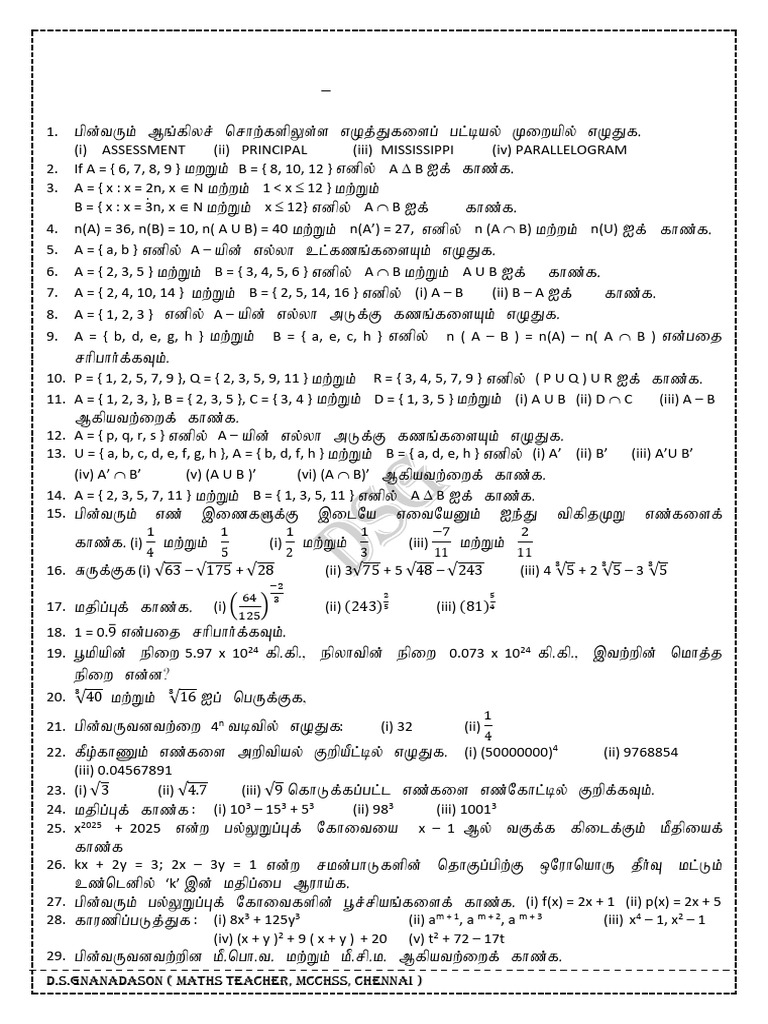 –
1. பின்வரும் ஆங்கிலச் சொற்களிலுள்ள எழுத்துகளைப் பட்டியல் முறையில் எழுதுக.
(i) ASSESSMENT (ii) PRINCIPAL (iii) MISSISSIPPI (iv) PARALLELOGRAM
2. If A = { 6, 7, 8, 9 } மறறும் B = { 8, 10, 12 } எனில் A ∆ B ஐக் காண்க.
3. A = { x : x = 2n, x ∈ N மற்றம் 1 < x ≤ 12 } மற்றும்
B = { x : x = 3n, x ∈ N மற்றும் x ≤ 12} எனில் A ∩ B ஐக் காண்க.
4. n(A) = 36, n(B) = 10, n( A U B) = 40 மற்றும் n(A’) = 27, எனில் n (A ∩ B) மற்றம் n(U) ஐக் காண்க.
5. A = { a, b } எனில் A – யின் எல்லா உட்கணங்களையும் எழுதுக.
6. A = { 2, 3, 5 } மற்றும் B = { 3, 4, 5, 6 } எனில் A ∩ B மற்றும் A U B ஐக் காண்க.
7. A = { 2, 4, 10, 14 } மற்றும் B = { 2, 5, 14, 16 } எனில் (i) A – B (ii) B – A ஐக் காண்க.
8. A = { 1, 2, 3 } எனில் A – யின் எல்லா அடுக்கு கணங்களையும் எழுதுக.
9. A = { b, d, e, g, h } மற்றும் B = { a, e, c, h } எனில் n ( A – B ) = n(A) – n( A ∩ B ) என்பதை
சரிபார்க்கவும்.
10. P = { 1, 2, 5, 7, 9 }, Q = { 2, 3, 5, 9, 11 } மற்றும் R = { 3, 4, 5, 7, 9 } எனில் ( P U Q ) U R ஐக் காண்க.
11. A = { 1, 2, 3, }, B = { 2, 3, 5 }, C = { 3, 4 } மற்றும் D = { 1, 3, 5 } மற்றும் (i) A U B (ii) D ∩ C (iii) A – B
ஆகியவற்றைக் காண்க.
12. A = { p, q, r, s } எனில் A – யின் எல்லா அடுக்கு கணங்களையும் எழுதுக.
13. U = { a, b, c, d, e, f, g, h }, A = { b, d, f, h } மற்றும் B = { a, d, e, h } எனில் (i) A’ (ii) B’ (iii) A’U B’
(iv) A’ ∩ B’ (v) (A U B )’ (vi) (A ∩ B)’ ஆகியவற்றைக் காண்க.
14. A = { 2, 3, 5, 7, 11 } மற்றும் B = { 1, 3, 5, 11 } எனில் A ∆ B ஐக் காண்க.
15. பின்வரும் எண் இணைகளுக்கு இடையே எவையேனும் ஐந்து விகிதமுறு எண்களைக்
காண்க. (i) 1/4 மற்றும் 1/5 (i) 1/2 மற்றும் 1/3 (iii) −7/11 மற்றும் 2/11
16. சுருக்குக (i) √63 − √175 + √28 (ii) 3√75 + 5 √48 − √243 (iii) 4 ∛5 + 2 ∛5 – 3 ∛5
17. மதிப்புக் காண்க. (i) (64/125)^(−2/3) (ii) (243)^(2/5) (iii) (81)^(5/4)
18. 1 = 0.9̅ என்பதை சரிபார்க்கவும்.
19. பூமியின் நிறை 5.97 x 10²⁴ கி.கி., நிலாவின் நிறை 0.073 x 10²⁴ கி.கி., இவற்றின் மொத்த
நிறை என்ன?
20. ∛40 மற்றும் ∛16 ஐப் பெருக்குக.
21. பின்வருவனவற்றை 4ⁿ வடிவில் எழுதுக: (i) 32 (ii) 1/4
22. கீழ்காணும் எண்களை அறிவியல் குறியீட்டில் எழுதுக. (i) (50000000)⁴ (ii) 9768854
(iii) 0.04567891
23. (i) √3 (ii) √4.7 (iii) √9 கொடுக்கப்பட்ட எண்களை எண்கோட்டில் குறிக்கவும்.
24. மதிப்புக் காண்க : (i) 10³ – 15³ + 5³ (ii) 98³ (iii) 1001³
25. x²⁰²⁵ + 2025 என்ற பல்லுறுப்புக் கோவையை x – 1 ஆல் வகுக்க கிடைக்கும் மீதியைக்
காண்க
26. kx + 2y = 3; 2x – 3y = 1 என்ற சமன்பாடுகளின் தொகுப்பிற்கு ஒரேயொரு தீர்வு மட்டும்
உண்டெனில் ‘k’ இன் மதிப்பை ஆராய்க.
27. பின்வரும் பல்லுறுப்புக் கோவைகளின் பூச்சியங்களைக் காண்க. (i) f(x) = 2x + 1 (ii) p(x) = 2x + 5
28. காரணிப்படுத்துக : (i) 8x³ + 125y³ (ii) aᵐ⁺¹, aᵐ⁺², aᵐ⁺³ (iii) x⁴ – 1, x² – 1
(iv) (x + y )² + 9 ( x + y ) + 20 (v) t² + 72 – 17t
29. பின்வருவனவற்றின மீ.பொ.வ. மற்றும் மீ.சி.ம. ஆகியவற்றைக் காண்க.
DSG
D.S.GNANADASON ( MATHS TEACHER, MCCHSS, CHENNAI )